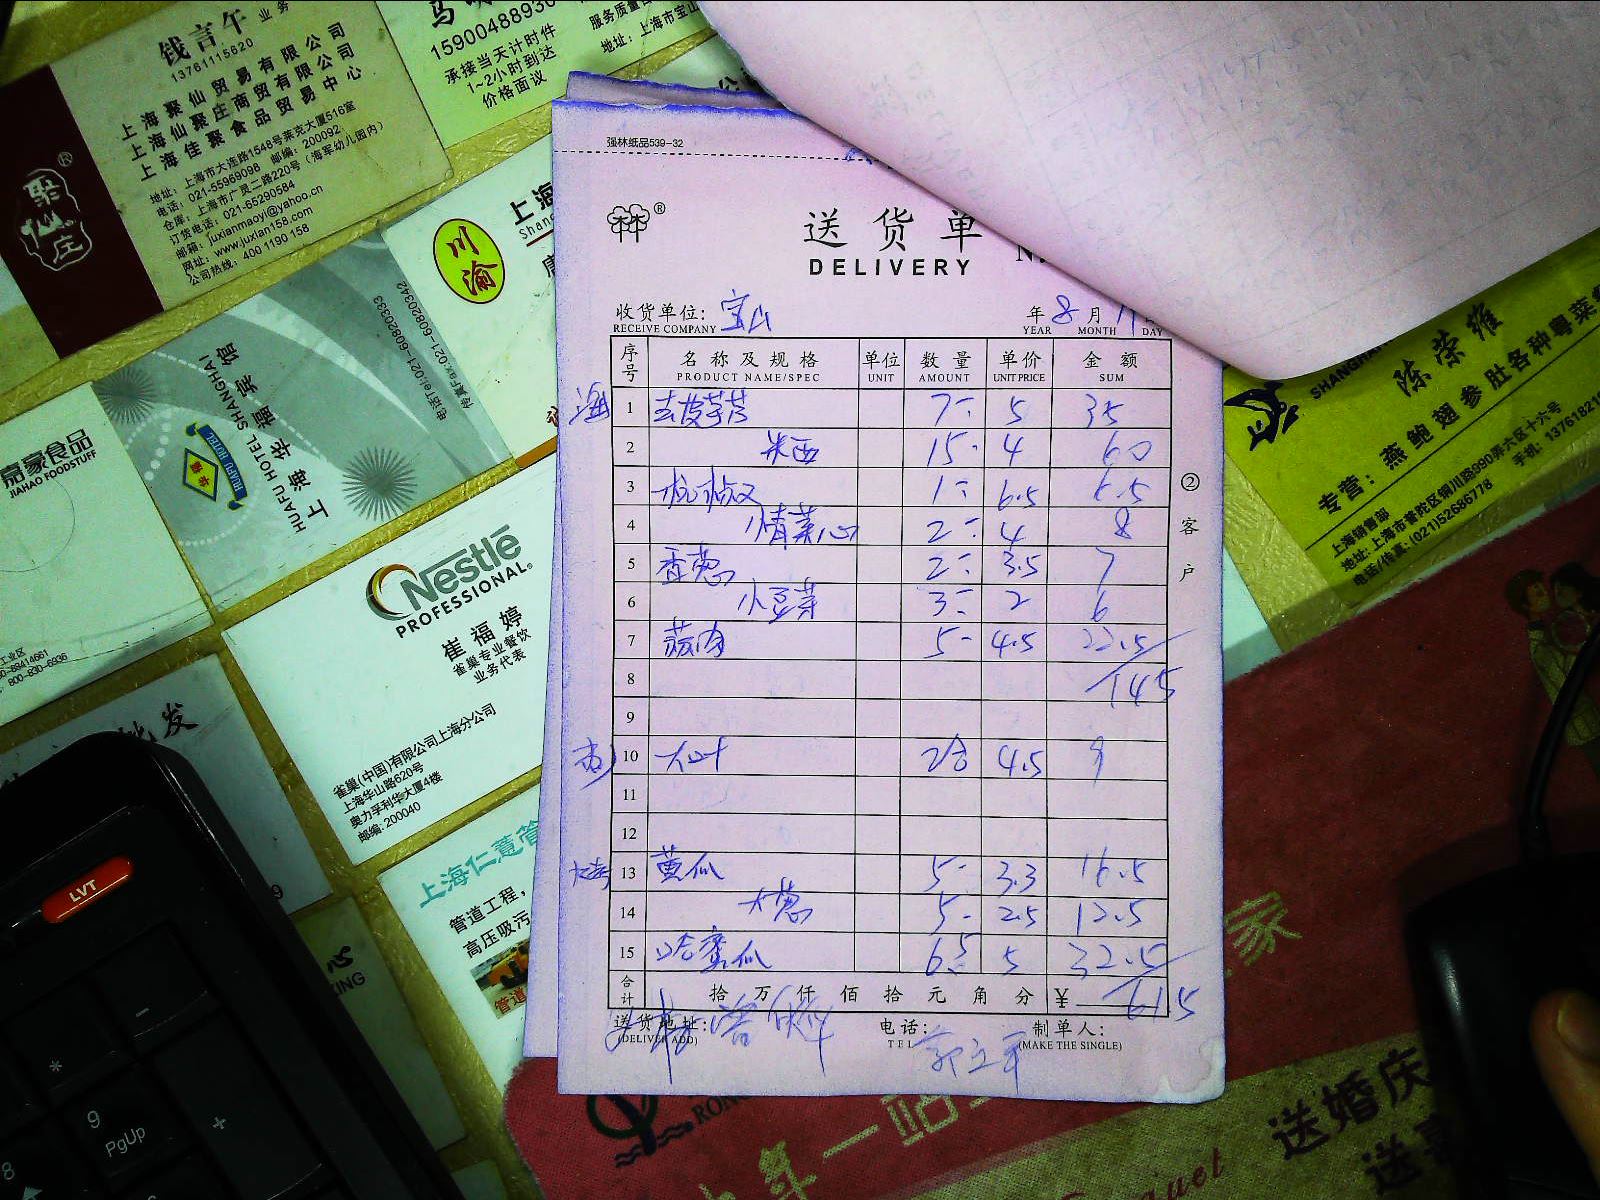 钱言午 业务
13761115620
上海聚仙贸易有限公司
上海仙聚庄商贸有限公司
上海佳聚食品贸易中心
地址：上海市大连路1548号莱克大厦516室
电话：021-55969098 邮编：200092
仓库：上海市广灵二路220号（海军幼儿园内）
订货电话：021-65290584
邮箱：juxianmaoyi@yahoo.cn
网址：www.juxian158.com
公司热线：400 1190 158
聚仙庄®
1590048893
承接当天计时件
1~2小时到达
价格面议
服务质量
地址：上海市宝山
川渝
上海
Shang
嘉豪食品
JIAHAO FOODSTUFF
上海华福宾馆
HUAFU HOTEL SHANGHAI
HUAFU HOTEL
电话Tel:021-60820333
传真Fax:021-60820342
Nestlé
PROFESSIONAL®
崔福婷
雀巢专业餐饮
业务代表
雀巢(中国)有限公司上海分公司
上海华山路620号
奥力孚利华大厦4楼
邮编: 200040
批发
上海仁薏管
管道工程，
高压吸污
管道
心
KING
强林纸品539-32
林林®
送货单
DELIVERY
收货单位：宝山 年8月11日
RECEIVE COMPANY YEAR MONTH DAY
序号 名称及规格 单位 数量 单价 金额
PRODUCT NAME/SPEC UNIT AMOUNT UNIT PRICE SUM
海 1 去皮芋艿 7 5 35
2 米西 15 4 60
3 杭椒 1 6.5 6.5
4 菜心 2 4 8
5 香葱 2 3.5 7
6 小豆芽 3 2 6
7 蒜肉 5 4.5 22.5
8 145
9
10 2合 4.5 9
11
12
13 黄瓜 5 3.3 16.5
14 大葱 5 2.5 12.5
15 哈密瓜 6.5 5 32.5
合计 拾万仟佰拾元角分 ¥ 61.5
送货地址： 电话： 制单人：
(DELIVER ADD) TEL (MAKE THE SINGLE)
②客户
SHANGHA
陈荣维
专营：燕鲍翅参肚各种粤菜
上海销售部
地址: 上海市普陀区铜川路990弄六区十六号
电话/传真: (021)52686778
手机: 1376182
LVT
*
-
9
PgUp
+
8
家
年一站
送婚庆
送